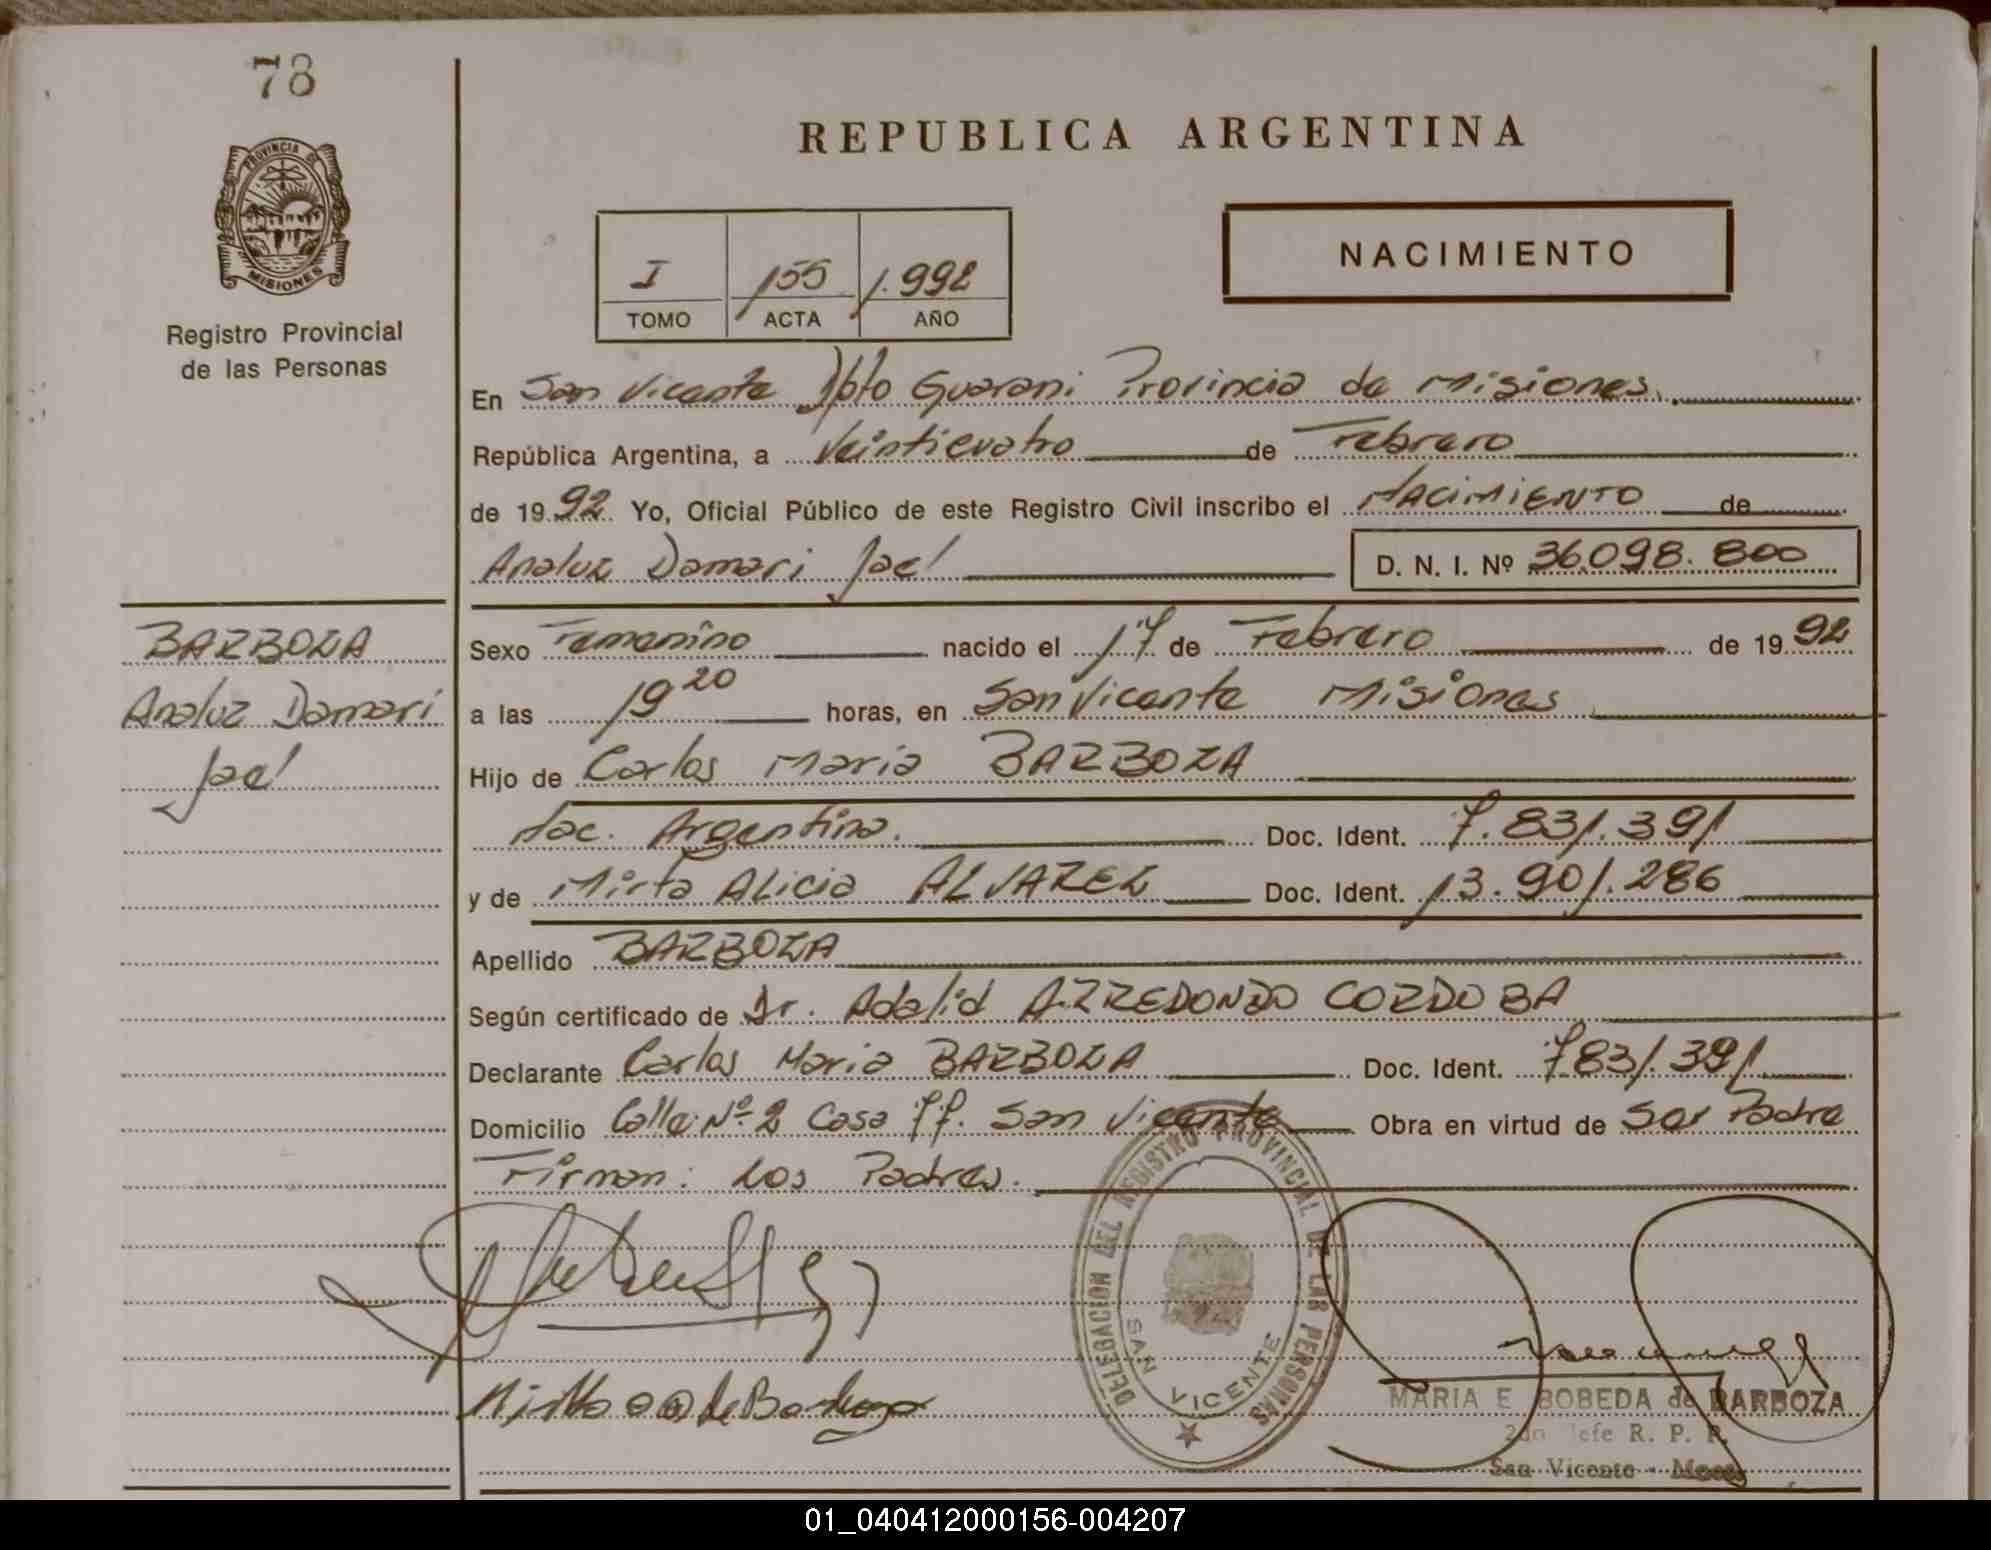 78
PROVINCIA DE
MISIONES
Registro Provincial
de las Personas
REPUBLICA ARGENTINA
NACIMIENTO
I 155 1.992
TOMO ACTA AÑO
En San Vicente Dpto Guarani Provincia de Misiones.
República Argentina, a Veinticuatro de Febrero
de 1992 Yo, Oficial Público de este Registro Civil inscribo el NACIMIENTO de
Analuz Damari Jael D. N. I. Nº 36.098.800
BARBOZA
Analuz Damari
Jael
Sexo Femenino nacido el 17 de Febrero de 1992
a las 19 20 horas, en San Vicente Misiones
Hijo de Carlos Maria BARBOZA
Nac. Argentina. Doc. Ident. 7.831.391
y de Mirta ALicia ALVAREZ Doc. Ident. 13.901.286
Apellido BARBOZA
Según certificado de Dr. Adalid ARREDONDO CORDOBA
Declarante Carlos Maria BARBOZA Doc. Ident. 7831.391
Domicilio Calle Nº 2 Casa 77. San Vicente Obra en virtud de Ser Padre
Firman: Los Padres.
DELEGACION DEL REGISTRO PROVINCIAL DE LAS PERSONAS
SAN VICENTE
de Barboza
MARIA E BOBEDA de BARBOZA
2do Jefe R. P. P.
San Vicente - Mnes
01_040412000156-004207